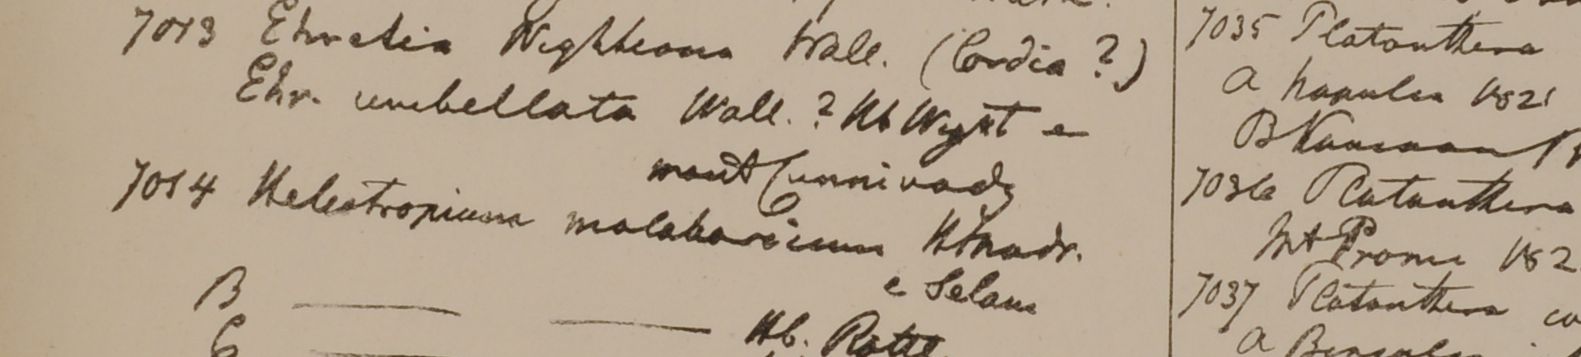 7013 Ehretia Wightiana Wall. (Cordia ?)
Ehr. umbellata Wall. ? Hb Wight e
mont Cunnivady
7014 Heliotropium malabaricum Hb madr.
e Selam
B
C Hb. Rottl.
7035 Platanthera
a 1821
B
7036 Platanthera
Mt Prome 182
7037 Platanthera
a